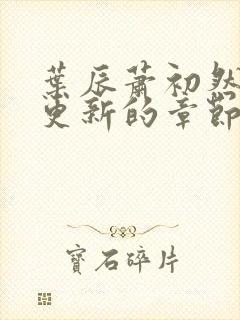 葉辰蕭初然
更新的章節
寶石碎片